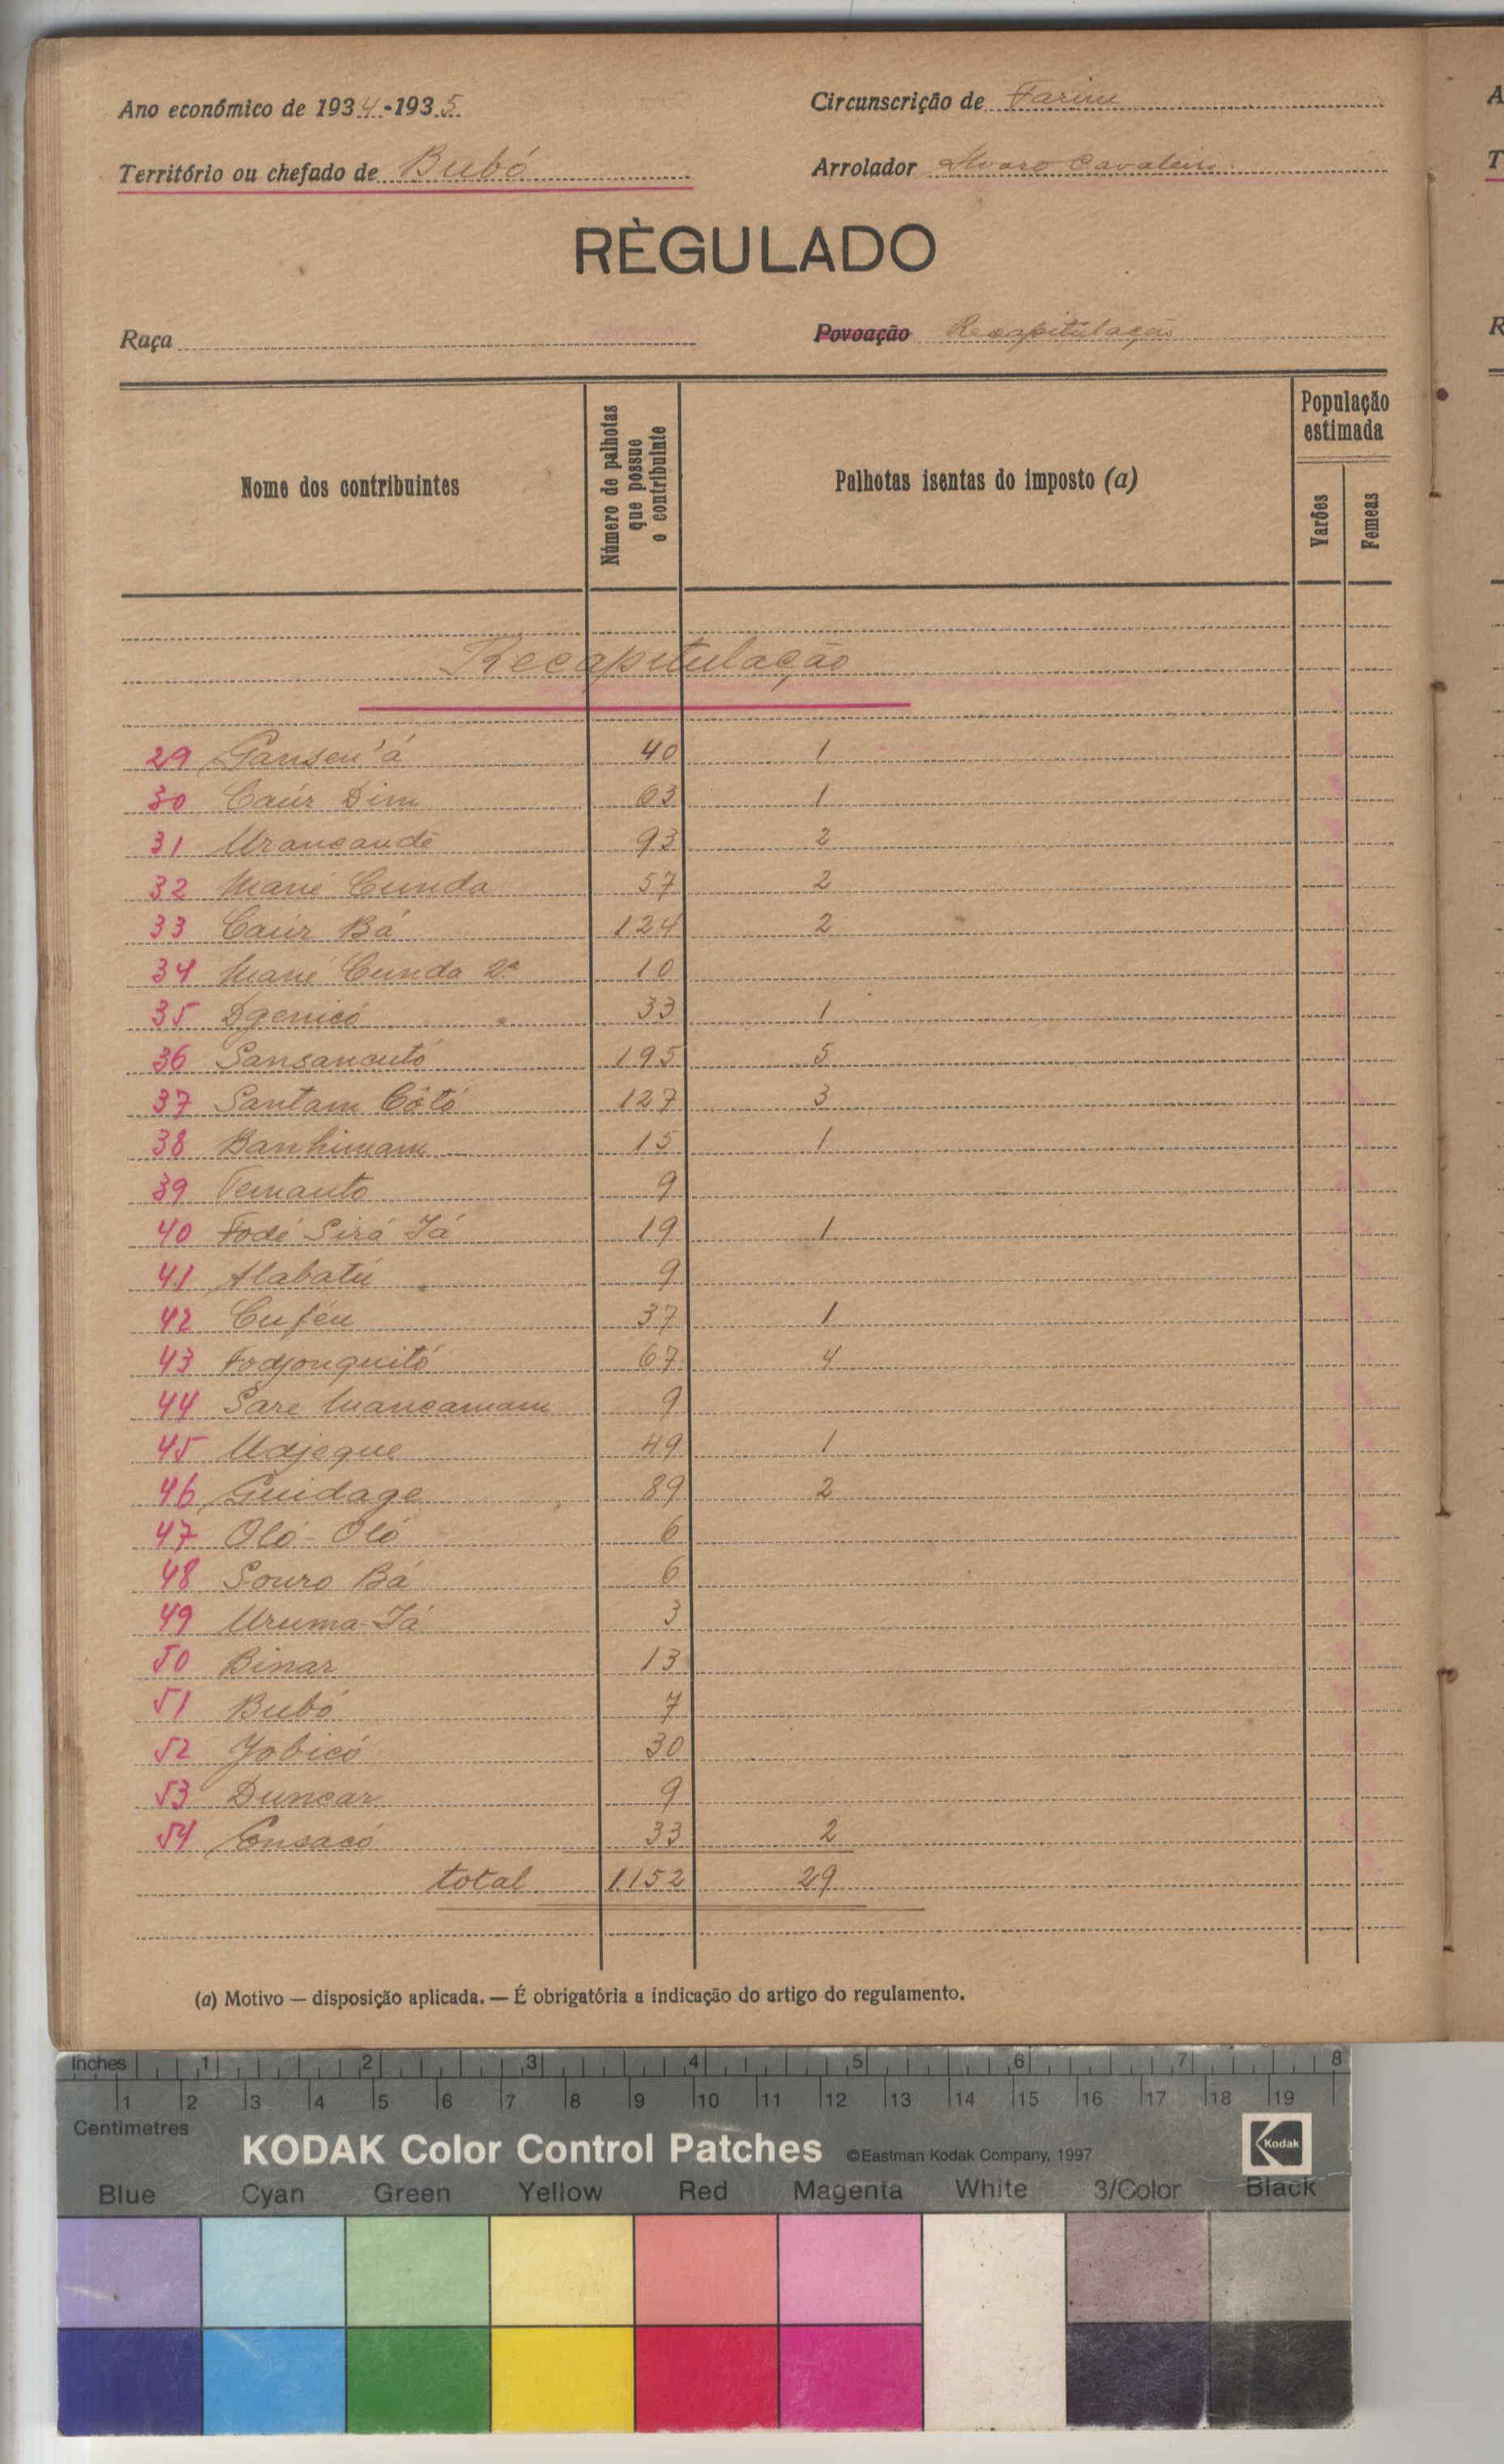 Ano económico de 1934-1935
Circunscrição de Farim
Território ou chefado de Bubó
Arrolador Alvaro Cavaleiro
RÈGULADO
Raça
Povoação Recapitulação
Nome dos contribuintes
Número de palhotas
que possue
o contribuinte
Palhotas isentas do imposto (a)
População
estimada
Varões
Femeas
Recapitulação
29 40 1
30 Caúr Dim 63 1
31 93 2
32 Mané Cunda 57 2
33 Caúr Bá 124 2
34 Mané Cunda 2ª 10
35 Dgenicó 33 1
36 Sansancutó 195 5
37 Santam Côtó 127 3
38 Banhimam 15 1
39 9
40 Fodé Sirá Já 19 1
41 Alabatú 9
42 Cuféu 37 1
43 Fodjonquitó 67 4
44 Sare Mancamam 9
45 Udjeque 49 1
46 Guidage 89 2
47 Oló-Oló 6
48 Souro Bá 6
49 Uruma-Já 3
50 Binar 13
51 Bubó 7
52 Jobicó 30
53 Duncar 9
54 Consacó 33 2
total 1152 29
(a) Motivo — disposição aplicada. — É obrigatória a indicação do artigo do regulamento.
Inches 1 2 3 4 5 6 7 8
1 2 3 4 5 6 7 8 9 10 11 12 13 14 15 16 17 18 19
Centimetres
KODAK Color Control Patches ©Eastman Kodak Company, 1997 Kodak
Blue Cyan Green Yellow Red Magenta White 3/Color Black